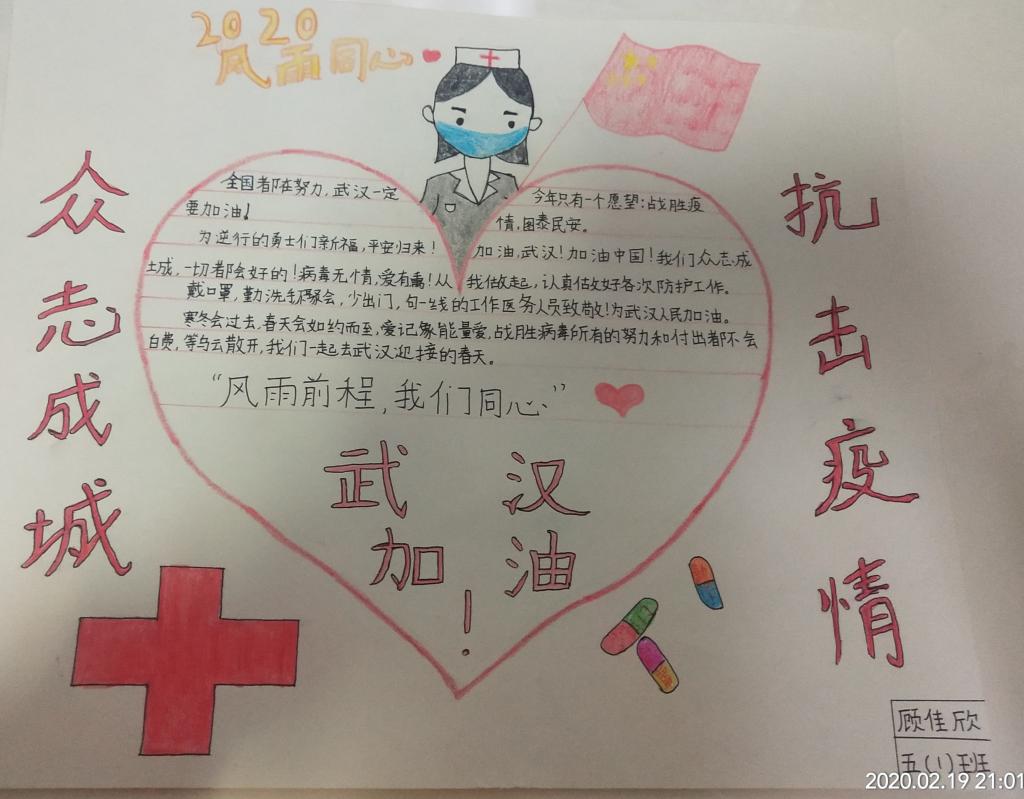 2020
风雨同心
众志成城
抗击疫情
全国都在努力，武汉一定
要加油！
为逆行的勇士们祈福，平安归来！
今年只有一个愿望：战胜疫
情，国泰民安。
加油，武汉！加油中国！我们众志成
城，一切都会好的！病毒无情，爱有 ！从我做起，认真做好各次防护工作。
戴口罩，勤洗手 聚会，少出门，向一线的工作医务人员致敬！为武汉人民加油。
寒冬会过去，春天会如约而至，爱记 能量爱，战胜病毒所有的努力和付出都不会
白费，等乌云散开，我们一起去武汉迎接的春天。
“风雨前程，我们同心”
武汉
加油
！
顾佳欣
五(1)班
2020.02.19 21:01